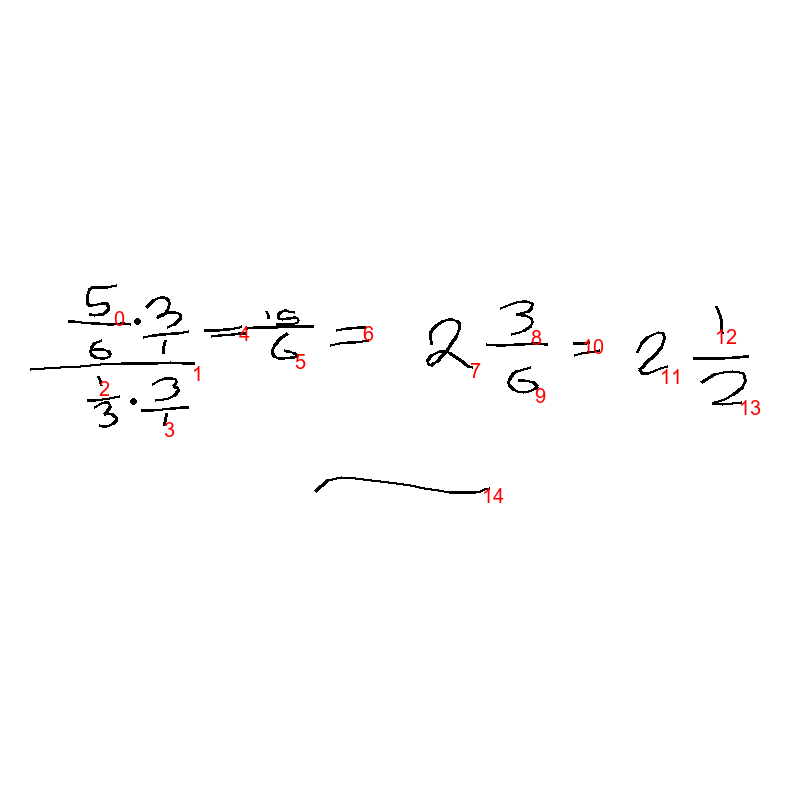 \frac{\frac{5}{6} \cdot \frac{3}{1}}{\frac{1}{3} \cdot \frac{3}{1}} = \frac{15}{6} = 2 \frac{3}{6} = 2 \frac{1}{2}
0 1 2 3 4 5 6 7 8 9 10 11 12 13
14